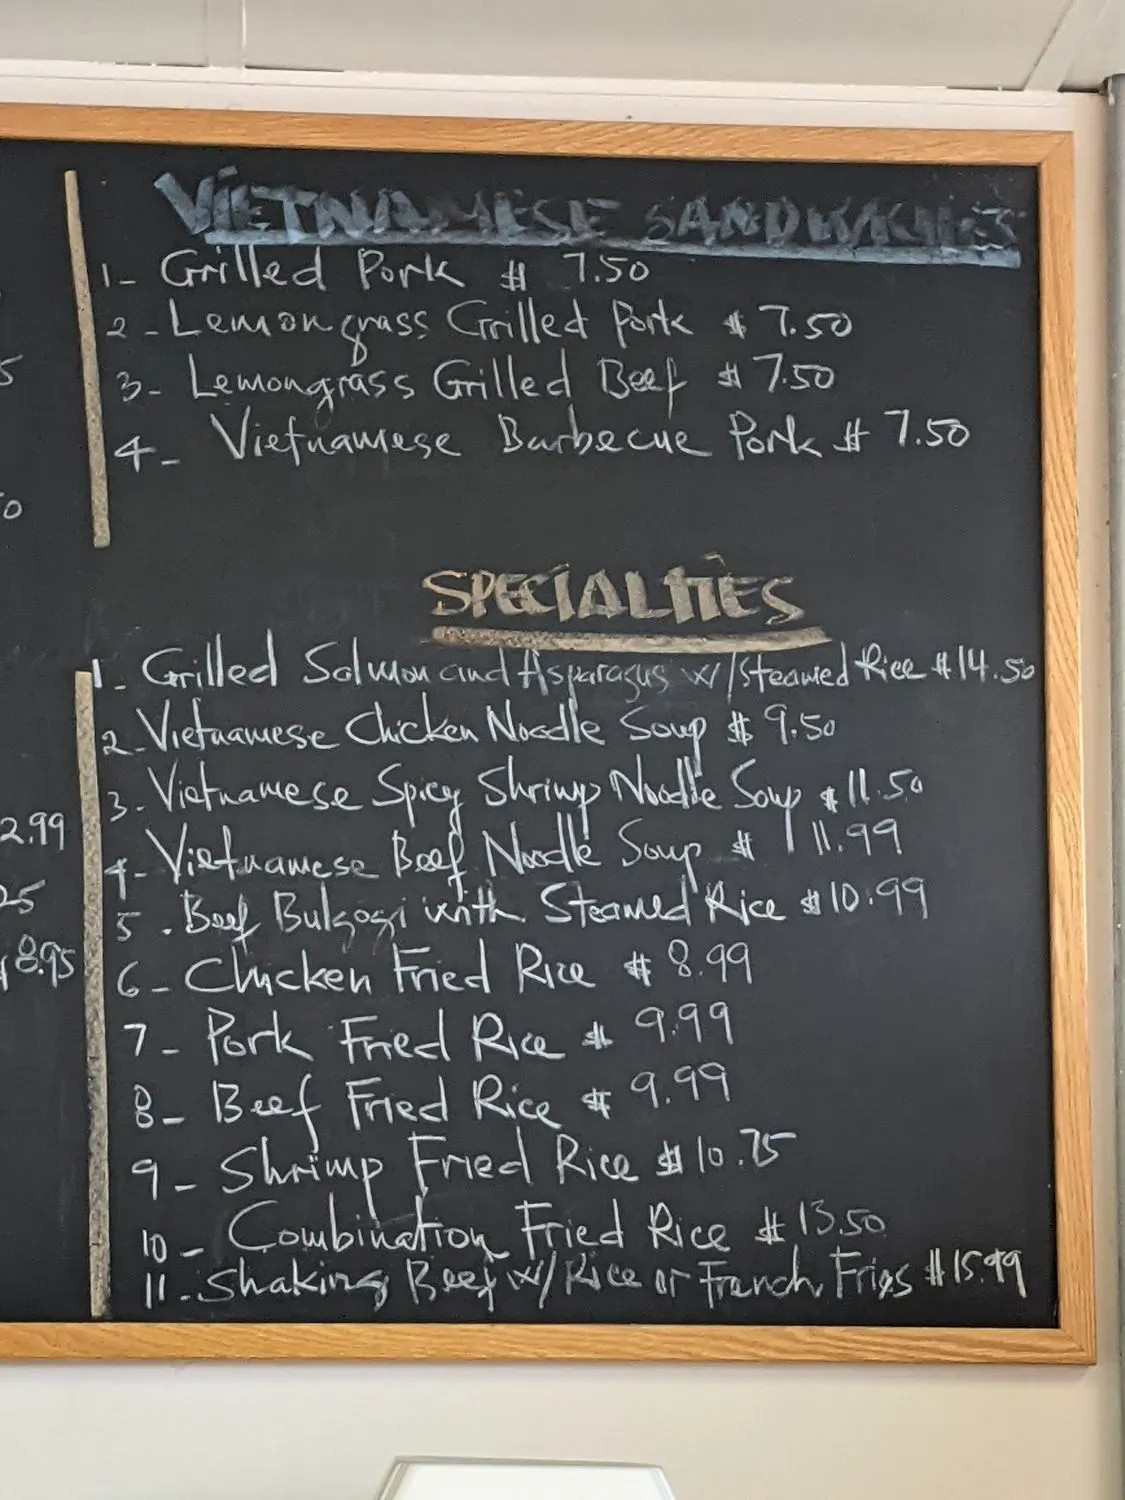 VIETNAMESE SANDWICHES
1- Grilled Pork $ 7.50
2 - Lemongrass Grilled Pork $ 7.50
3- Lemongrass Grilled Beef $ 7.50
4- Vietnamese Barbecue Pork $ 7.50
SPECIALITIES
1- Grilled Salmon and Asparagus w/ Steamed Rice $ 14.50
2- Vietnamese Chicken Noodle Soup $ 9.50
3- Vietnamese Spicy Shrimp Noodle Soup $ 11.50
4- Vietnamese Beef Noodle Soup $ 11.99
5. Beef Bulgogi with Steamed Rice $ 10.99
6- Chicken Fried Rice $ 8.99
7- Pork Fried Rice $ 9.99
8- Beef Fried Rice $ 9.99
9- Shrimp Fried Rice $ 10.75
10- Combination Fried Rice $ 13.50
11. Shaking Beef w/ Rice or French Fries $ 15.99
2.99
25
8.95